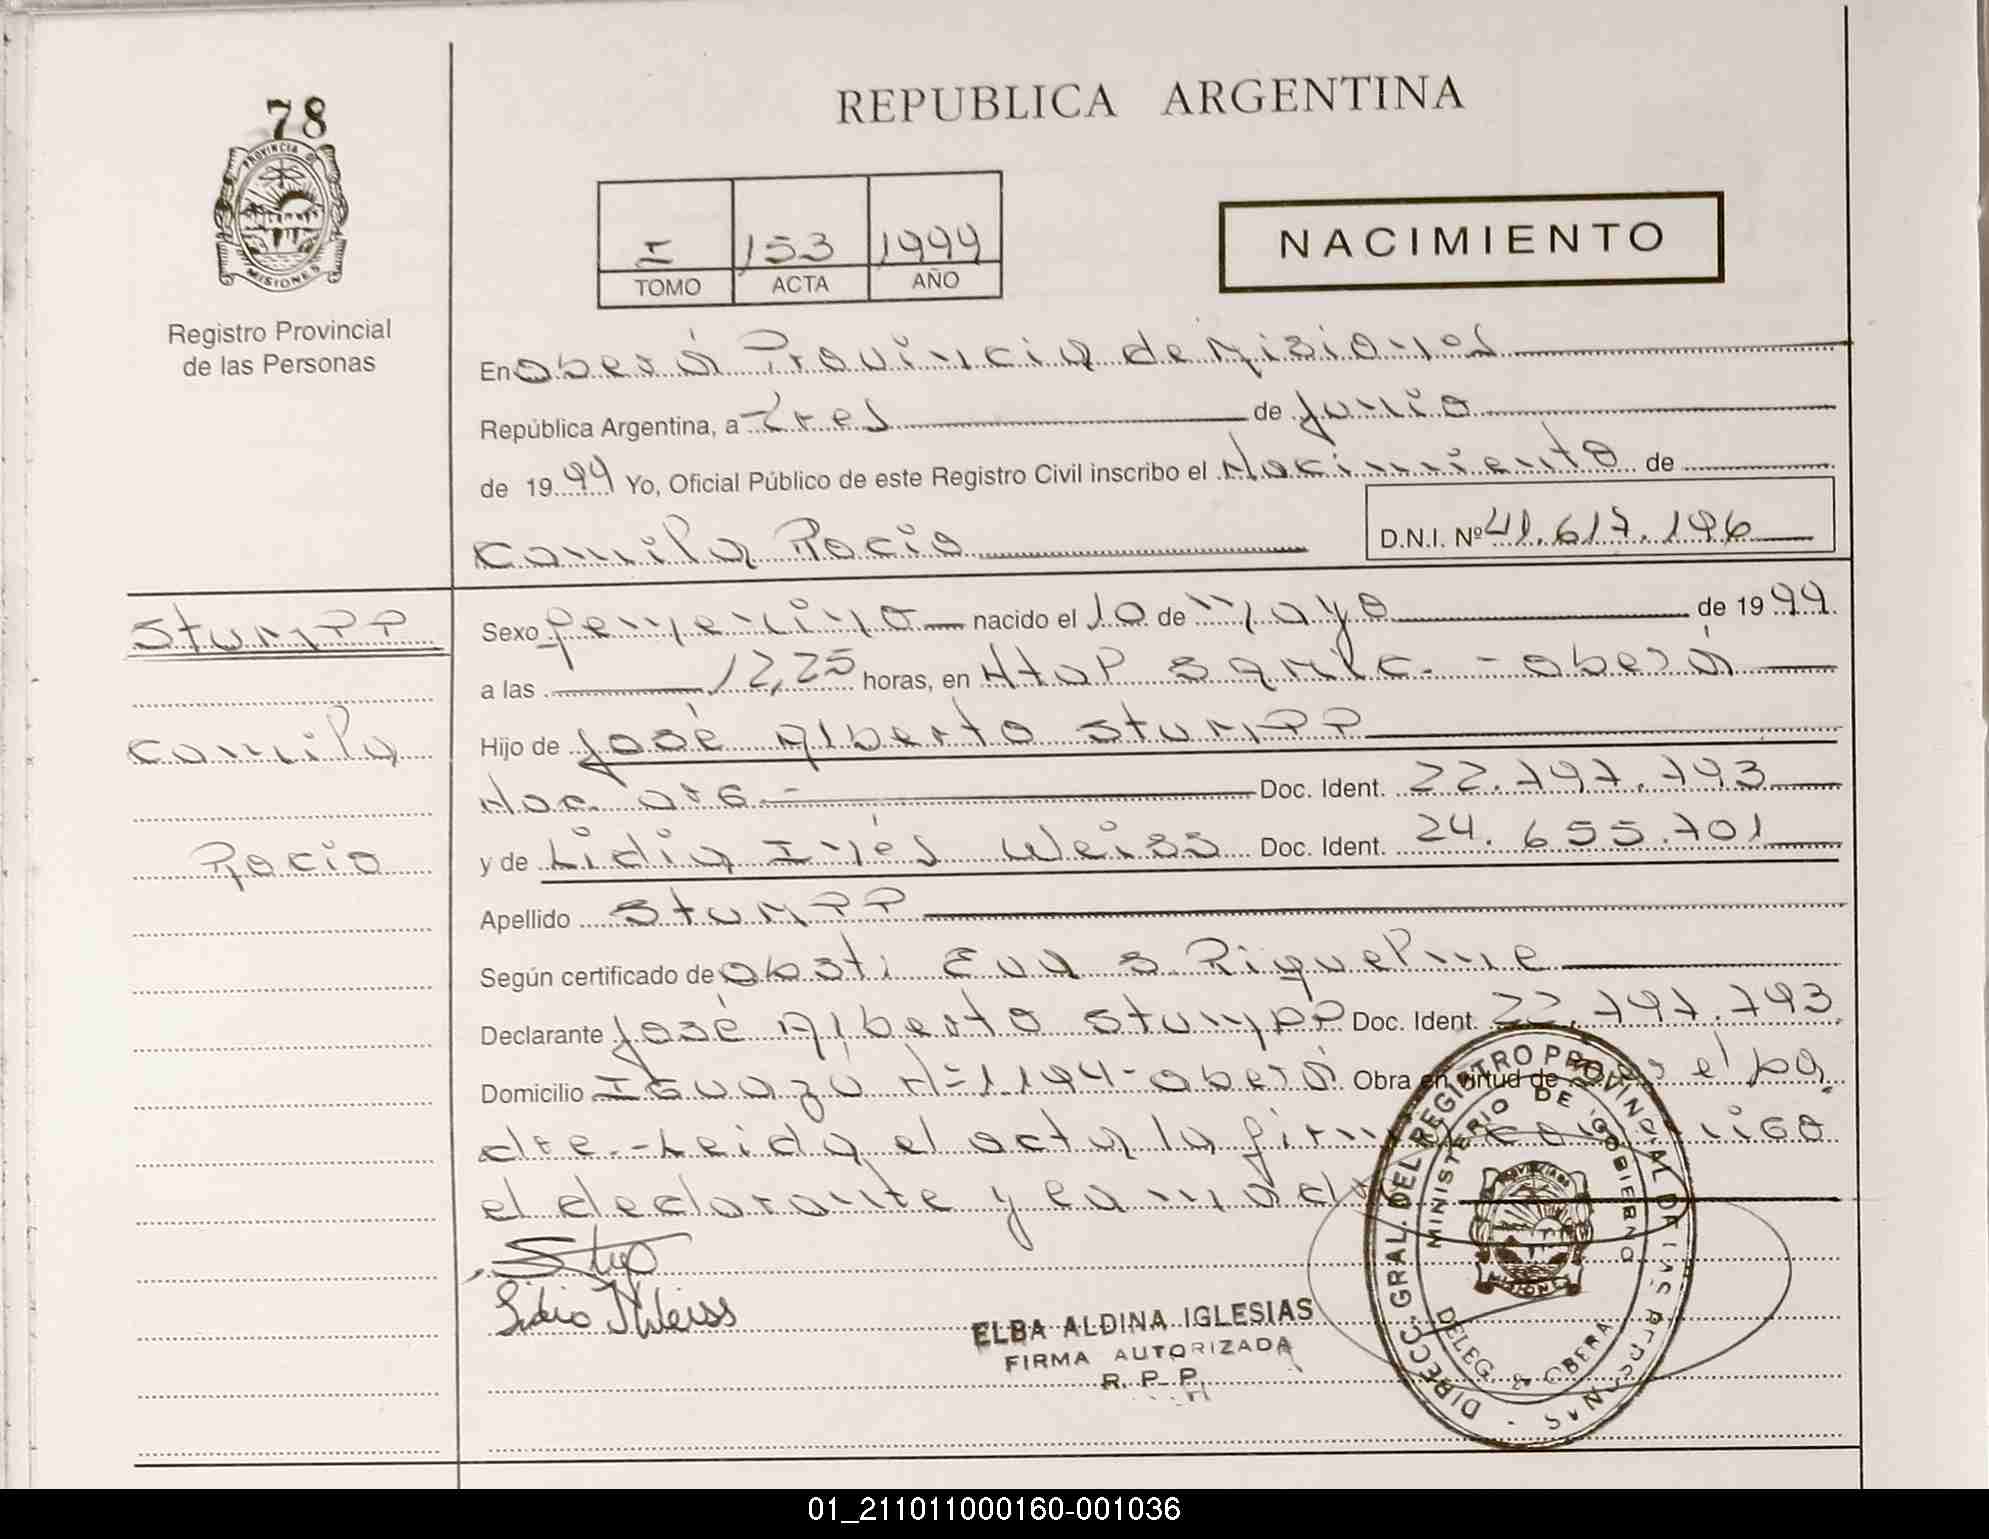 78
PROVINCIA DE
MISIONES
Registro Provincial
de las Personas
REPUBLICA ARGENTINA
I 153 1999
TOMO ACTA AÑO
NACIMIENTO
En Oberá Provincia de Misiones
República Argentina, a Tres de Junio
de 1999 Yo, Oficial Público de este Registro Civil inscribo el Nacimiento de
Camila Rocio D.N.I. Nº 41.617.196
Stumpp
Camila
Rocio
Sexo femenino nacido el 10 de mayo de 1999
a las 12,25 horas, en Htal Samic. - Oberá
Hijo de José Alberto Stumpp
Nac. arg. - Doc. Ident. 22.797.793
y de Lidia Inés Weiss Doc. Ident. 24.655.701
Apellido Stumpp
Según certificado de obst. Eva S. Riquelme
Declarante José Alberto Stumpp Doc. Ident. 22.797.793
Domicilio Iguazú Nº 1.194 - Oberá Obra en virtud de ser el pa
dre.- Leida el acta la firma conmigo
el declarante y la madre
Lidia I Weiss
ELBA ALDINA IGLESIAS
FIRMA AUTORIZADA
R. P. P.
DIRECC. GRAL. DEL REGISTRO PROVINCIAL DE LAS PERSONAS
MINISTERIO DE GOBIERNO
PROVINCIA DE
MISIONES
DELEG. OBERA
01_211011000160-001036